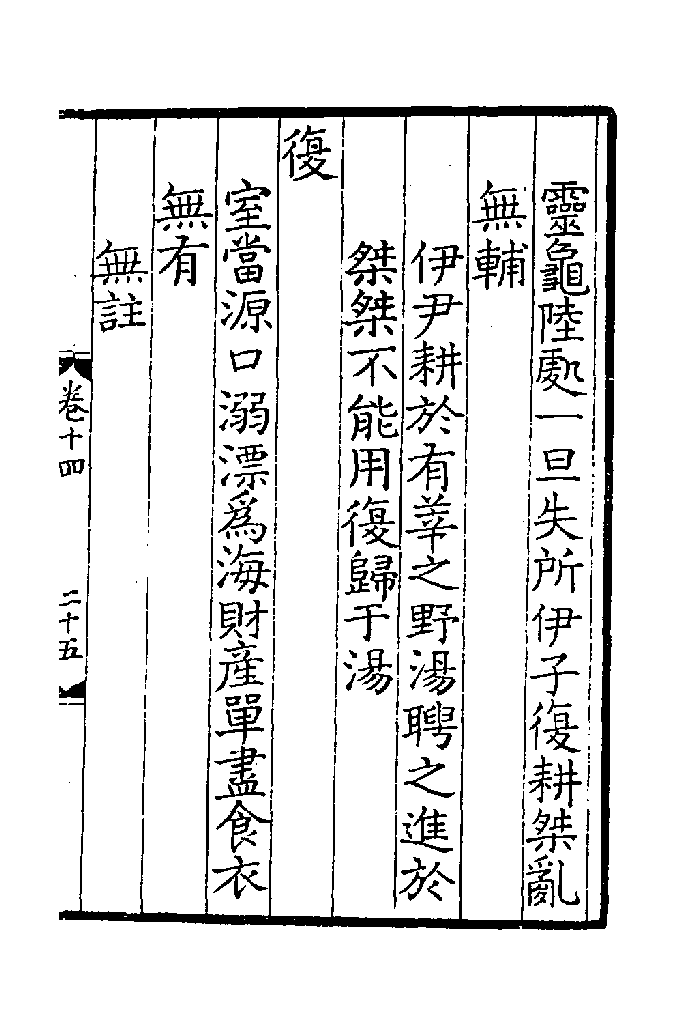 靈龜陸處一旦失所伊子復耕桀亂
無輔
伊尹耕於有莘之野湯聘之進於
桀桀不能用復歸于湯
復
室當源口溺漂爲海財產單盡食衣
無有
無註
卷十四
二十五